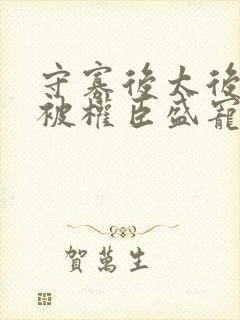 守寡後太後
被權臣盛寵
賀萬生